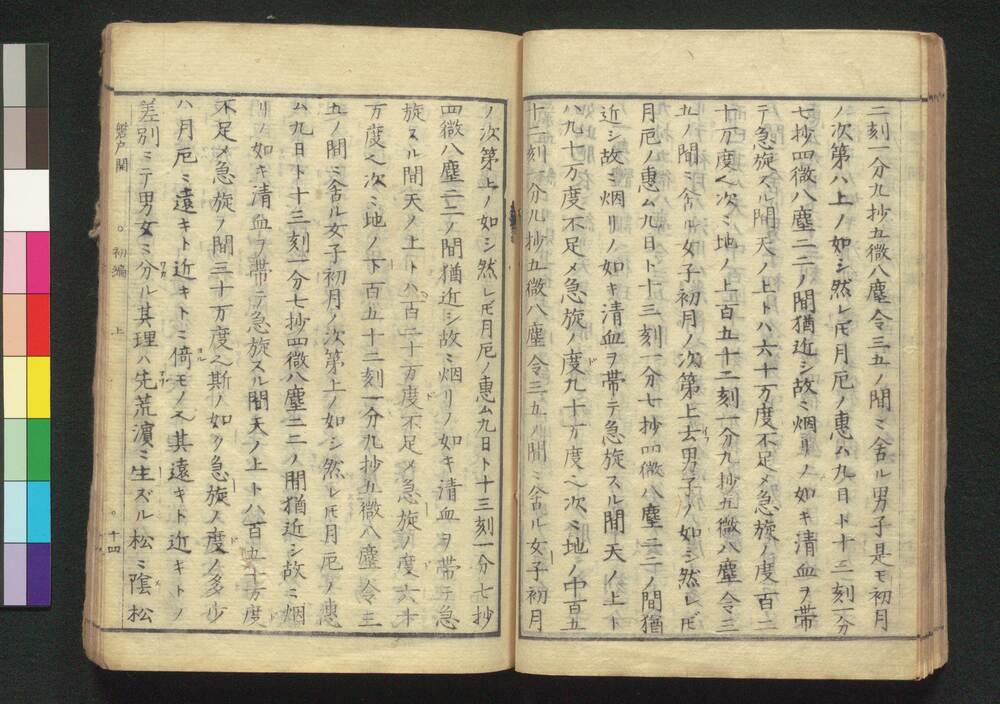 二刻一分九抄五微八塵令三五ノ間ミ舍ル男子是モ初月
ノ次第ハ上ノ如シ然レ𪜈月厄ノ惠ム九日ト十三刻一分
七抄四微八塵二二ノ間猶近シ故ミ烟リノ如キ清血ヲ帯
テ急旋スル間天ノ上トハ六十万度不足メ急旋ノ度百二
十万度ヘ次ミ地ノ上百五十二刻一分九抄五微八塵令三
五ノ間ミ舍ル女子初月ノ次第上去男子ノ如シ然レ𪜈
月厄ノ惠ム九日ト十三刻一分七抄四微八塵二二ノ間猶
近シ故ミ烟リノ如キ清血ヲ帯テ急旋スル間天ノ上ト
ハ九十万度不足メ急旋ノ度九十万度ヘ次ミ地ノ中百五
十二刻一分九抄五微八塵令三五ノ間ミ舍ル女子初月
ノ次第上ノ如シ然レ𪜈月厄ノ惠ム九日ト十三刻一分七抄
四微八塵二二ノ間猶近シ故ミ烟リノ如キ清血ヲ帯テ急
旋スル間天ノ上トハ百二十万度不足メ急旋ノ度六十
万度ヘ次ミ地ノ下百五十二刻一分九抄五微八塵令三
五ノ間ミ舍ル女子初月ノ次第上ノ如シ然レ𪜈月厄ノ惠
ム九日ト十三刻一分七抄四微八塵二二ノ間猶近シ故ミ烟
リノ如キ清血ヲ帯テ急旋スル間天ノ上トハ百五十万度
不足メ急旋ノ間三十万度ヘ斯ノ如ク急旋ノ度ノ多少
ハ月厄ミ遠キト近キトミ倚モノヘ其遠キト近キトノ
差別ミテ男女ミ分ル其理ハ先荒濱ミ生ズル松ミ陰松
磐戸開 初編 上 十四